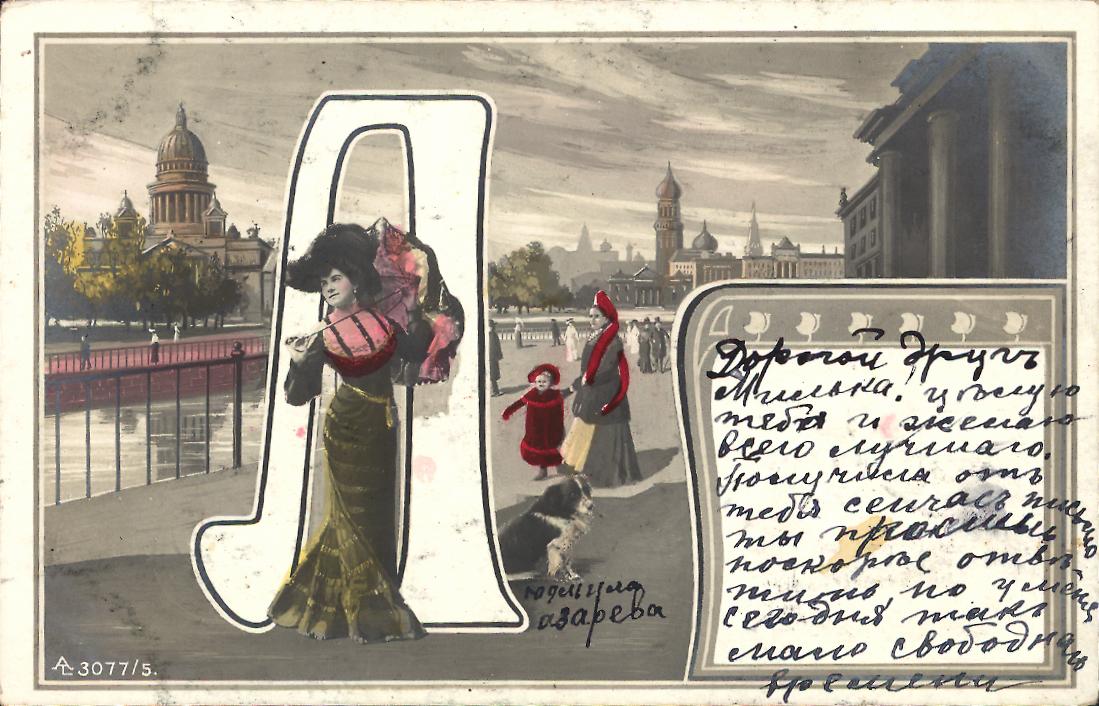 Л
Дорогой другъ
Милька! цѣлую
тебя и желаю
всего лучшаго.
Получила отъ
тебя сейчасъ письмо
ты просишь
поскорѣе отвѣ-
тить, но у меня
сегодня такъ
мало свободнаго
времени
юдмила
азарева
3077/5.